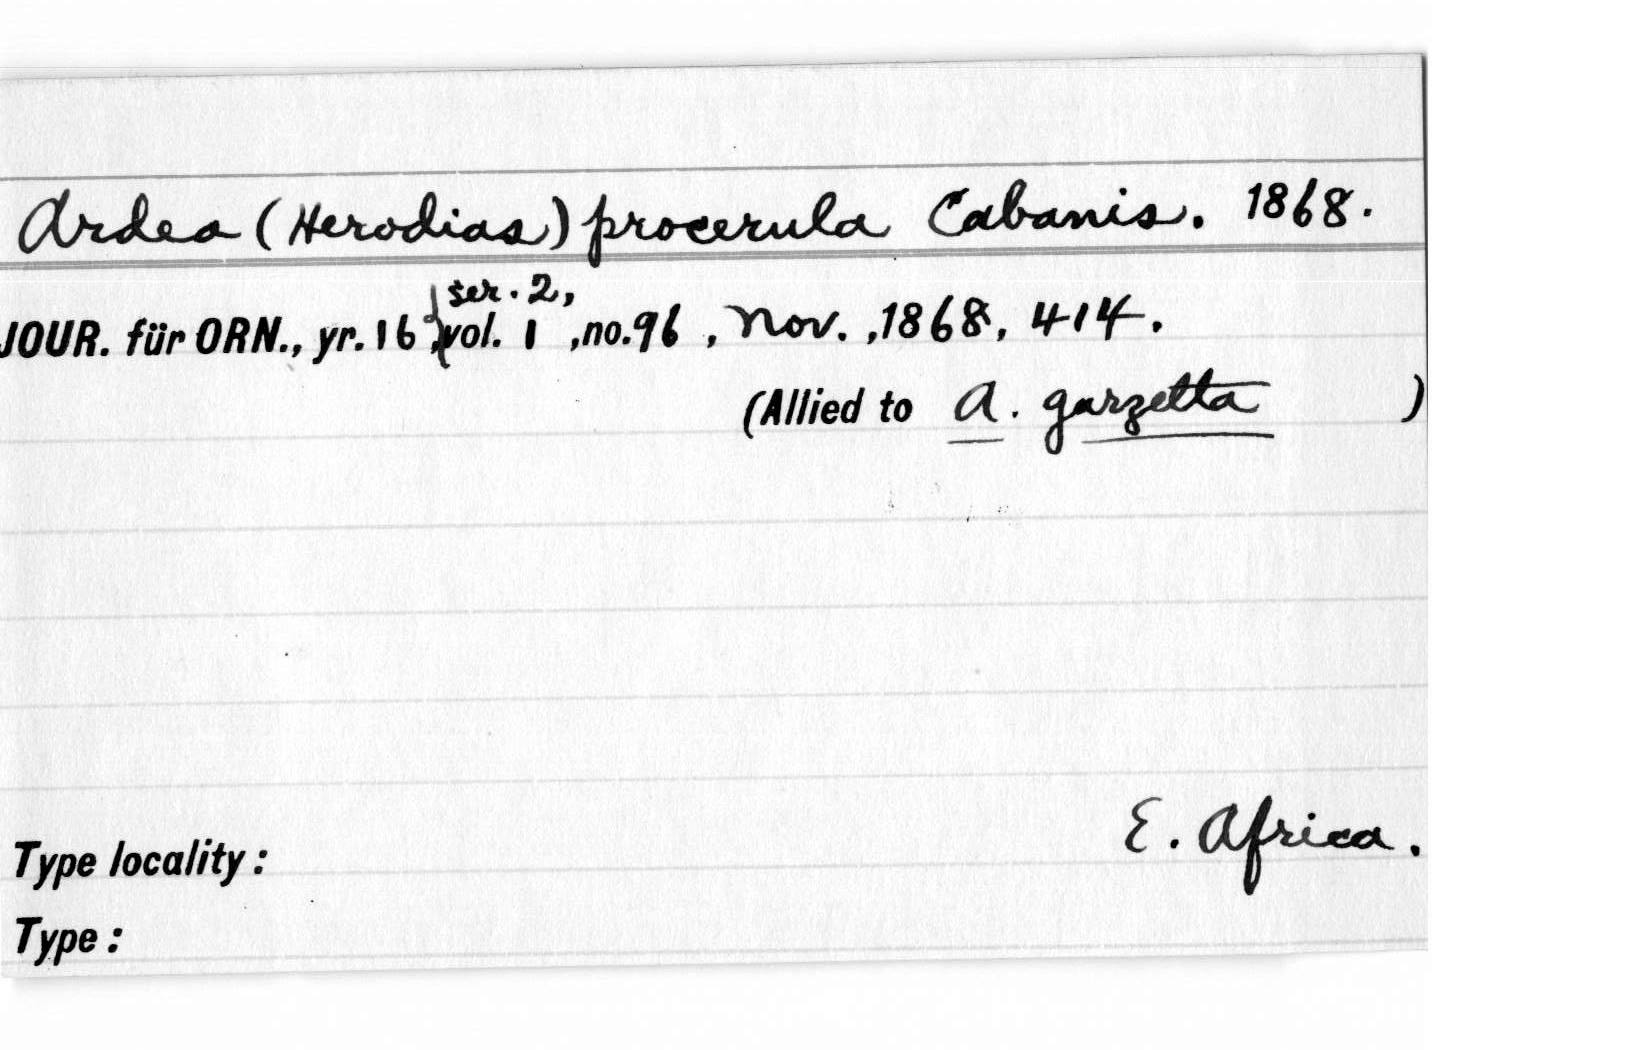 Ardea (Herodias) procerula Cabanis. 1868.
JOUR. für ORN., yr. 16, ser. 2, vol. 1, no. 96, Nov., 1868, 414.
(Allied to A. garzetta )
E. Africa.
Type locality:
Type: